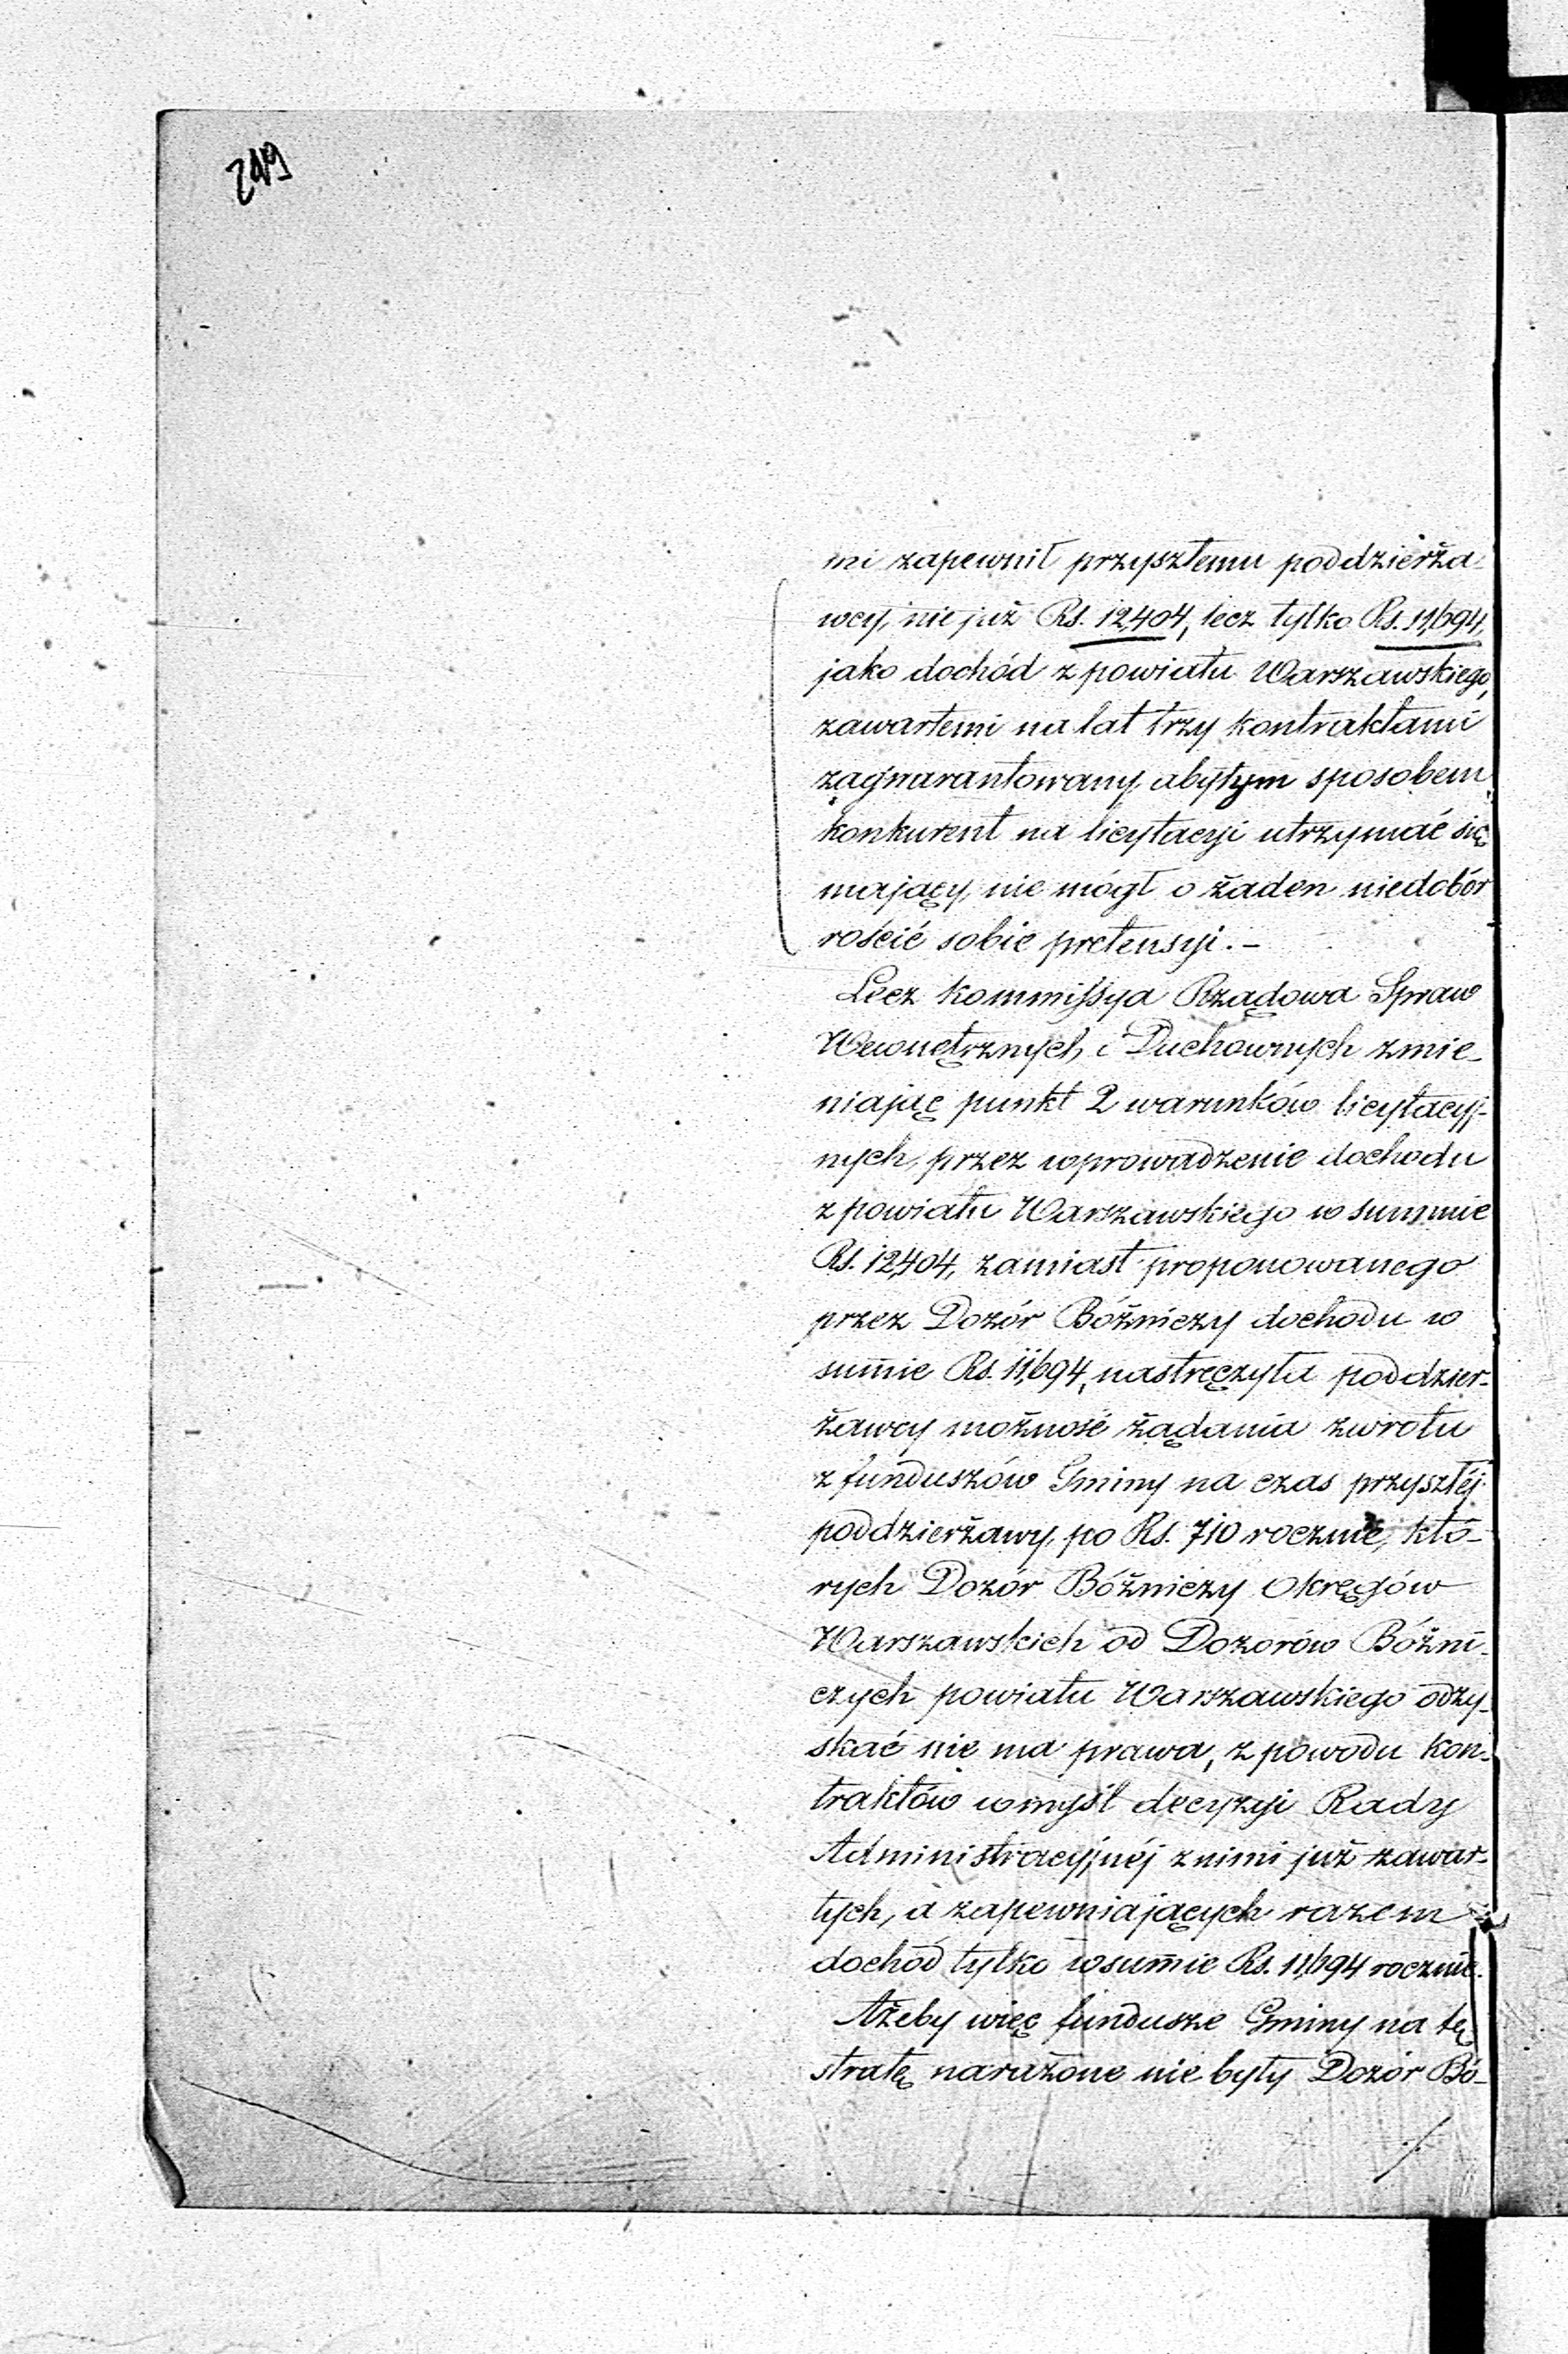 249
mi zapewnił przyszłemu poddzierża-
wcy, nie już Rs. 12,404, lecz tylko Rs. 11,694,
jako dochód z powiatu Warszawskiego,
zawartemi na lat trzy kontraktami
zagwarantowany, aby tym sposobem
konkurent na licytacyi utrzymać się
mający, nie mógł o żaden niedobór
rościć sobie pretensyi. –
Lecz Kommissya Rządowa Spraw
Wewnętrznych i Duchownych zmie-
niając punkt 2 warunków licytacyj-
nych, przez wprowadzenie dochodu
z powiatu Warszawskiego w summie
Rs. 12,404, zamiast proponowanego
przez Dozór Bóżniczy dochodu w
sum̄ie Rs. 11,694, nastręczyła poddzier-
żawcy możność żądania zwrotu
z funduszów Gminy na czas przyszłéj
poddzierżawy, po Rs. 710 rocznie, któ-
rych Dozór Bóżniczy Okręgów
Warszawskich od Dozorów Bóżni-
czych powiatu Warszawskiego odzy-
skać nie ma prawa, z powodu kon-
traktów w myśl decyzyi Rady
Administracyjnéj z nimi już zawar-
tych, a zapewniających razem
dochód tylko w sum̄ie Rs. 11,694 rocznie.
Ażeby więc fundusze Gminy na tę
stratę narażone nie były Dozór Bó-